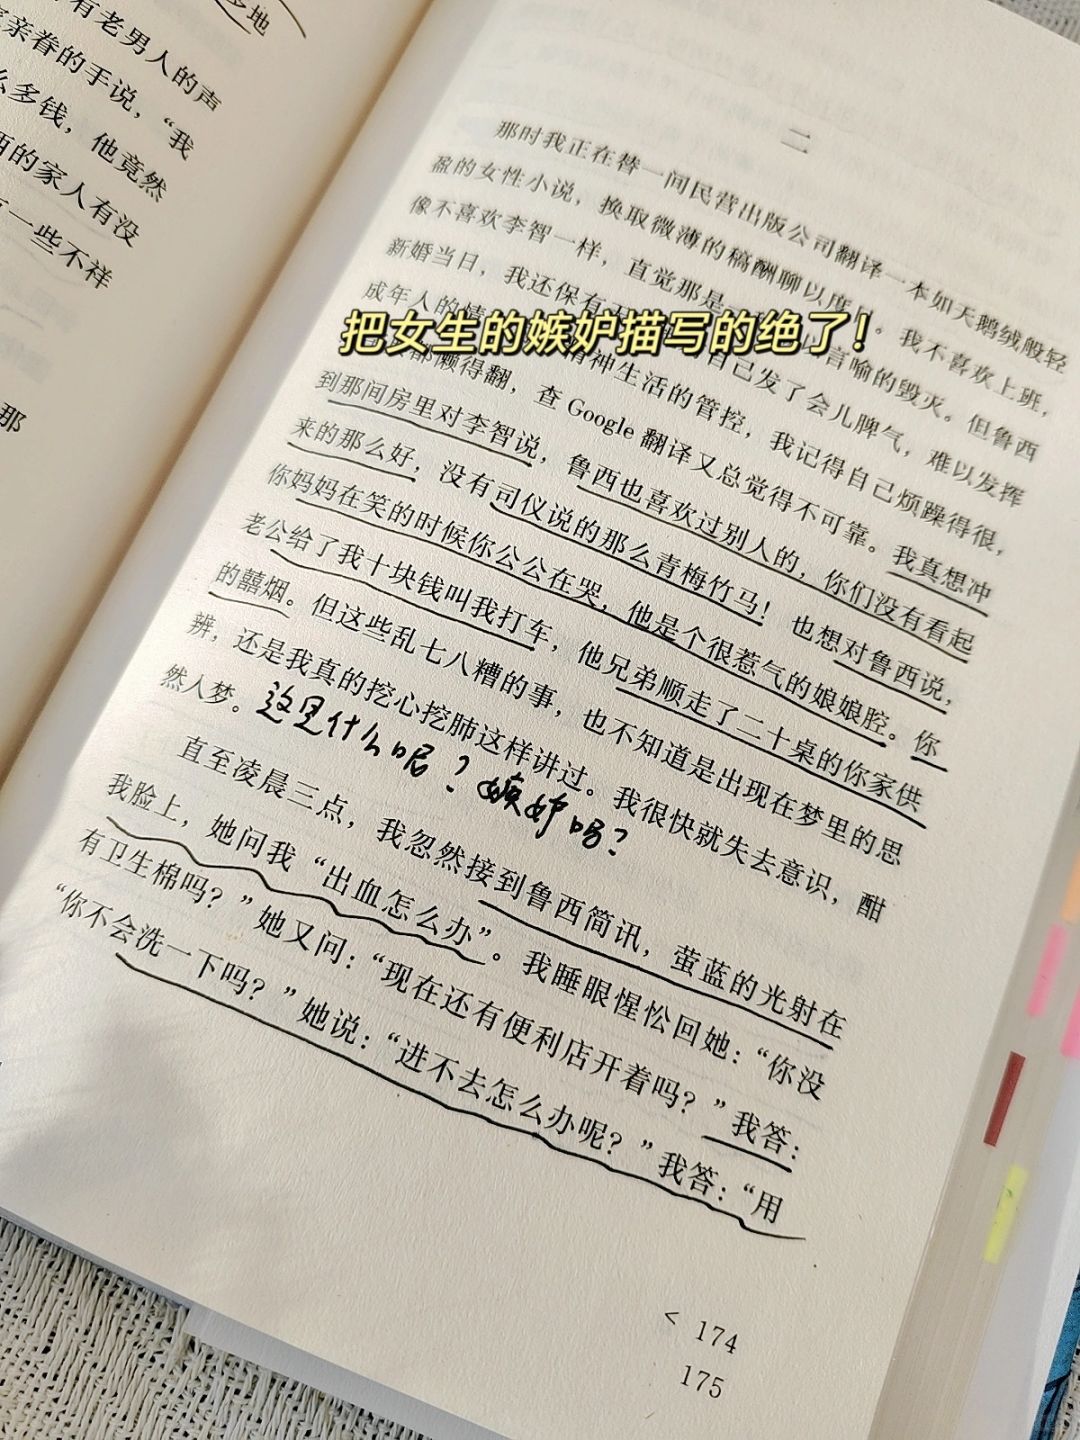 多地
有老男人的声
亲眷的手说，“我
么多钱，他竟然
西的家人有没
一些不祥
那
二
那时我正在替一间民营出版公司翻译一本如天鹅绒般轻
盈的女性小说，换取微薄的稿酬聊以度。我不喜欢上班，
像不喜欢李智一样，直觉那是以言喻的毁灭。但鲁西
新婚当日，我还保有自己发了会儿脾气，难以发挥
成年人的情精神生活的管控，我记得自己烦躁得很，
把女生的嫉妒描写的绝了！
都懒得翻，查 Google 翻译又总觉得不可靠。我真想冲
到那间房里对李智说，鲁西也喜欢过别人的，你们没有看起
来的那么好，没有司仪说的那么青梅竹马！也想对鲁西说，
你妈妈在笑的时候你公公在哭，他是个很惹气的娘娘腔。你
老公给了我十块钱叫我打车，他兄弟顺走了二十桌的你家供
的囍烟。但这些乱七八糟的事，也不知道是出现在梦里的思
辨，还是我真的挖心挖肺这样讲过。我很快就失去意识，酣
然入梦。
这是什么呢？嫉妒吗？
直至凌晨三点，我忽然接到鲁西简讯，萤蓝的光射在
我脸上，她问我“出血怎么办”。我睡眼惺忪回她：“你没
有卫生棉吗？”她又问：“现在还有便利店开着吗？”我答：
“你不会洗一下吗？”她说：“进不去怎么办呢？”我答：“用
< 174
175